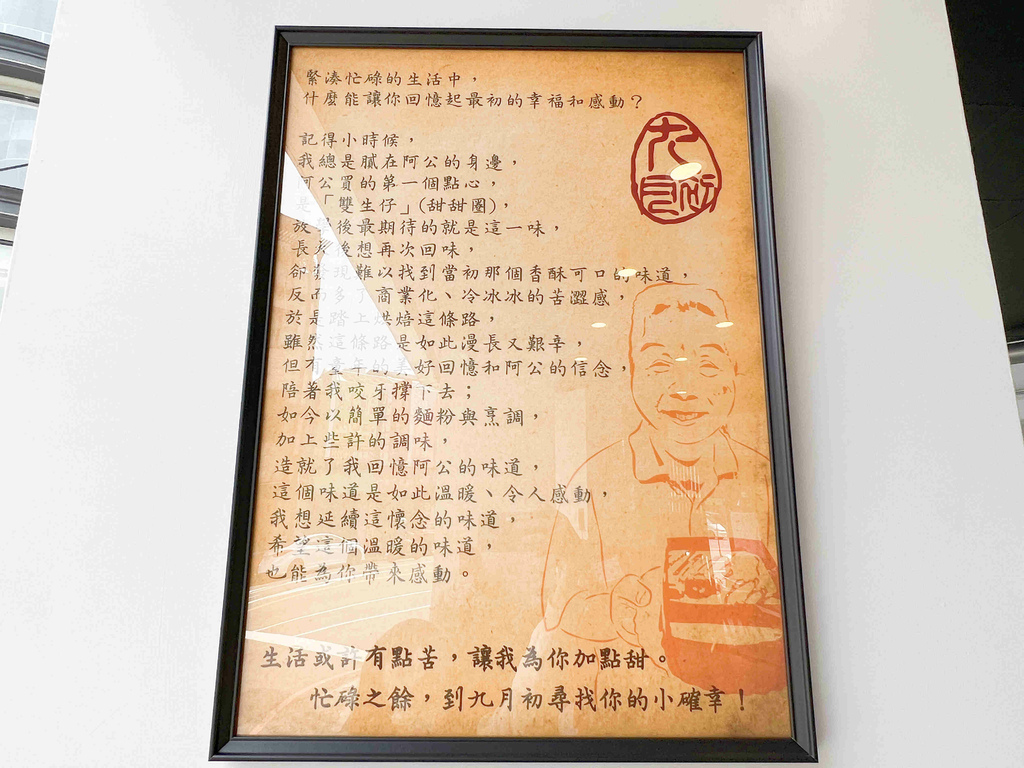 緊湊忙碌的生活中，
什麼能讓你回憶起最初的幸福和感動？
九月初
記得小時候，
我總是膩在阿公的身邊，
阿公買的第一個點心，
是「雙生仔」(甜甜圈)，
放學後最期待的就是這一味，
長大後想再次回味，
卻發現難以找到當初那個香酥可口的味道，
反而多了商業化、冷冰冰的苦澀感，
於是踏上烘焙這條路，
雖然這條路是如此漫長又艱辛，
但有童年的美好回憶和阿公的信念，
陪著我咬牙撐下去；
如今以簡單的麵粉與烹調，
加上些許的調味，
造就了我回憶阿公的味道，
這個味道是如此溫暖、令人感動，
我想延續這懷念的味道，
希望這個溫暖的味道，
也能為你帶來感動。
生活或許有點苦，讓我為你加點甜。
忙碌之餘，到九月初尋找你的小確幸！